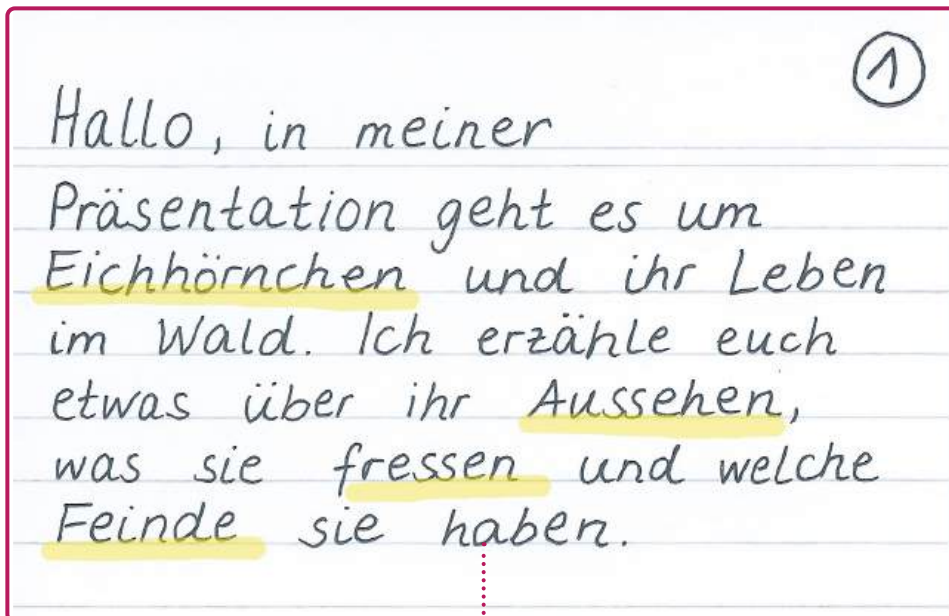 1
Hallo, in meiner
Präsentation geht es um
Eichhörnchen und ihr Leben
im Wald. Ich erzähle euch
etwas über ihr Aussehen,
was sie fressen und welche
Feinde sie haben.